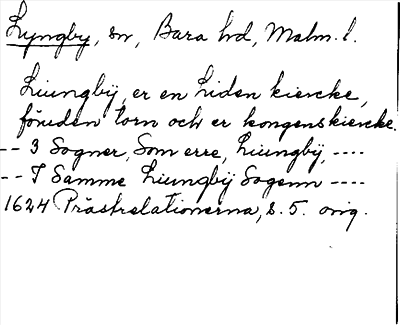 Lyngby, sn, Bara hd, Malm. l.
Liungbÿ, er en Liden kiercke,
föruden torn och er kongens kiercke.
-- 3 Sogner, Som erre, Liungbÿ, ----
-- J Samme Liungbÿ Sogenn ----
1624 Prästrelationerna, s. 5. orig.